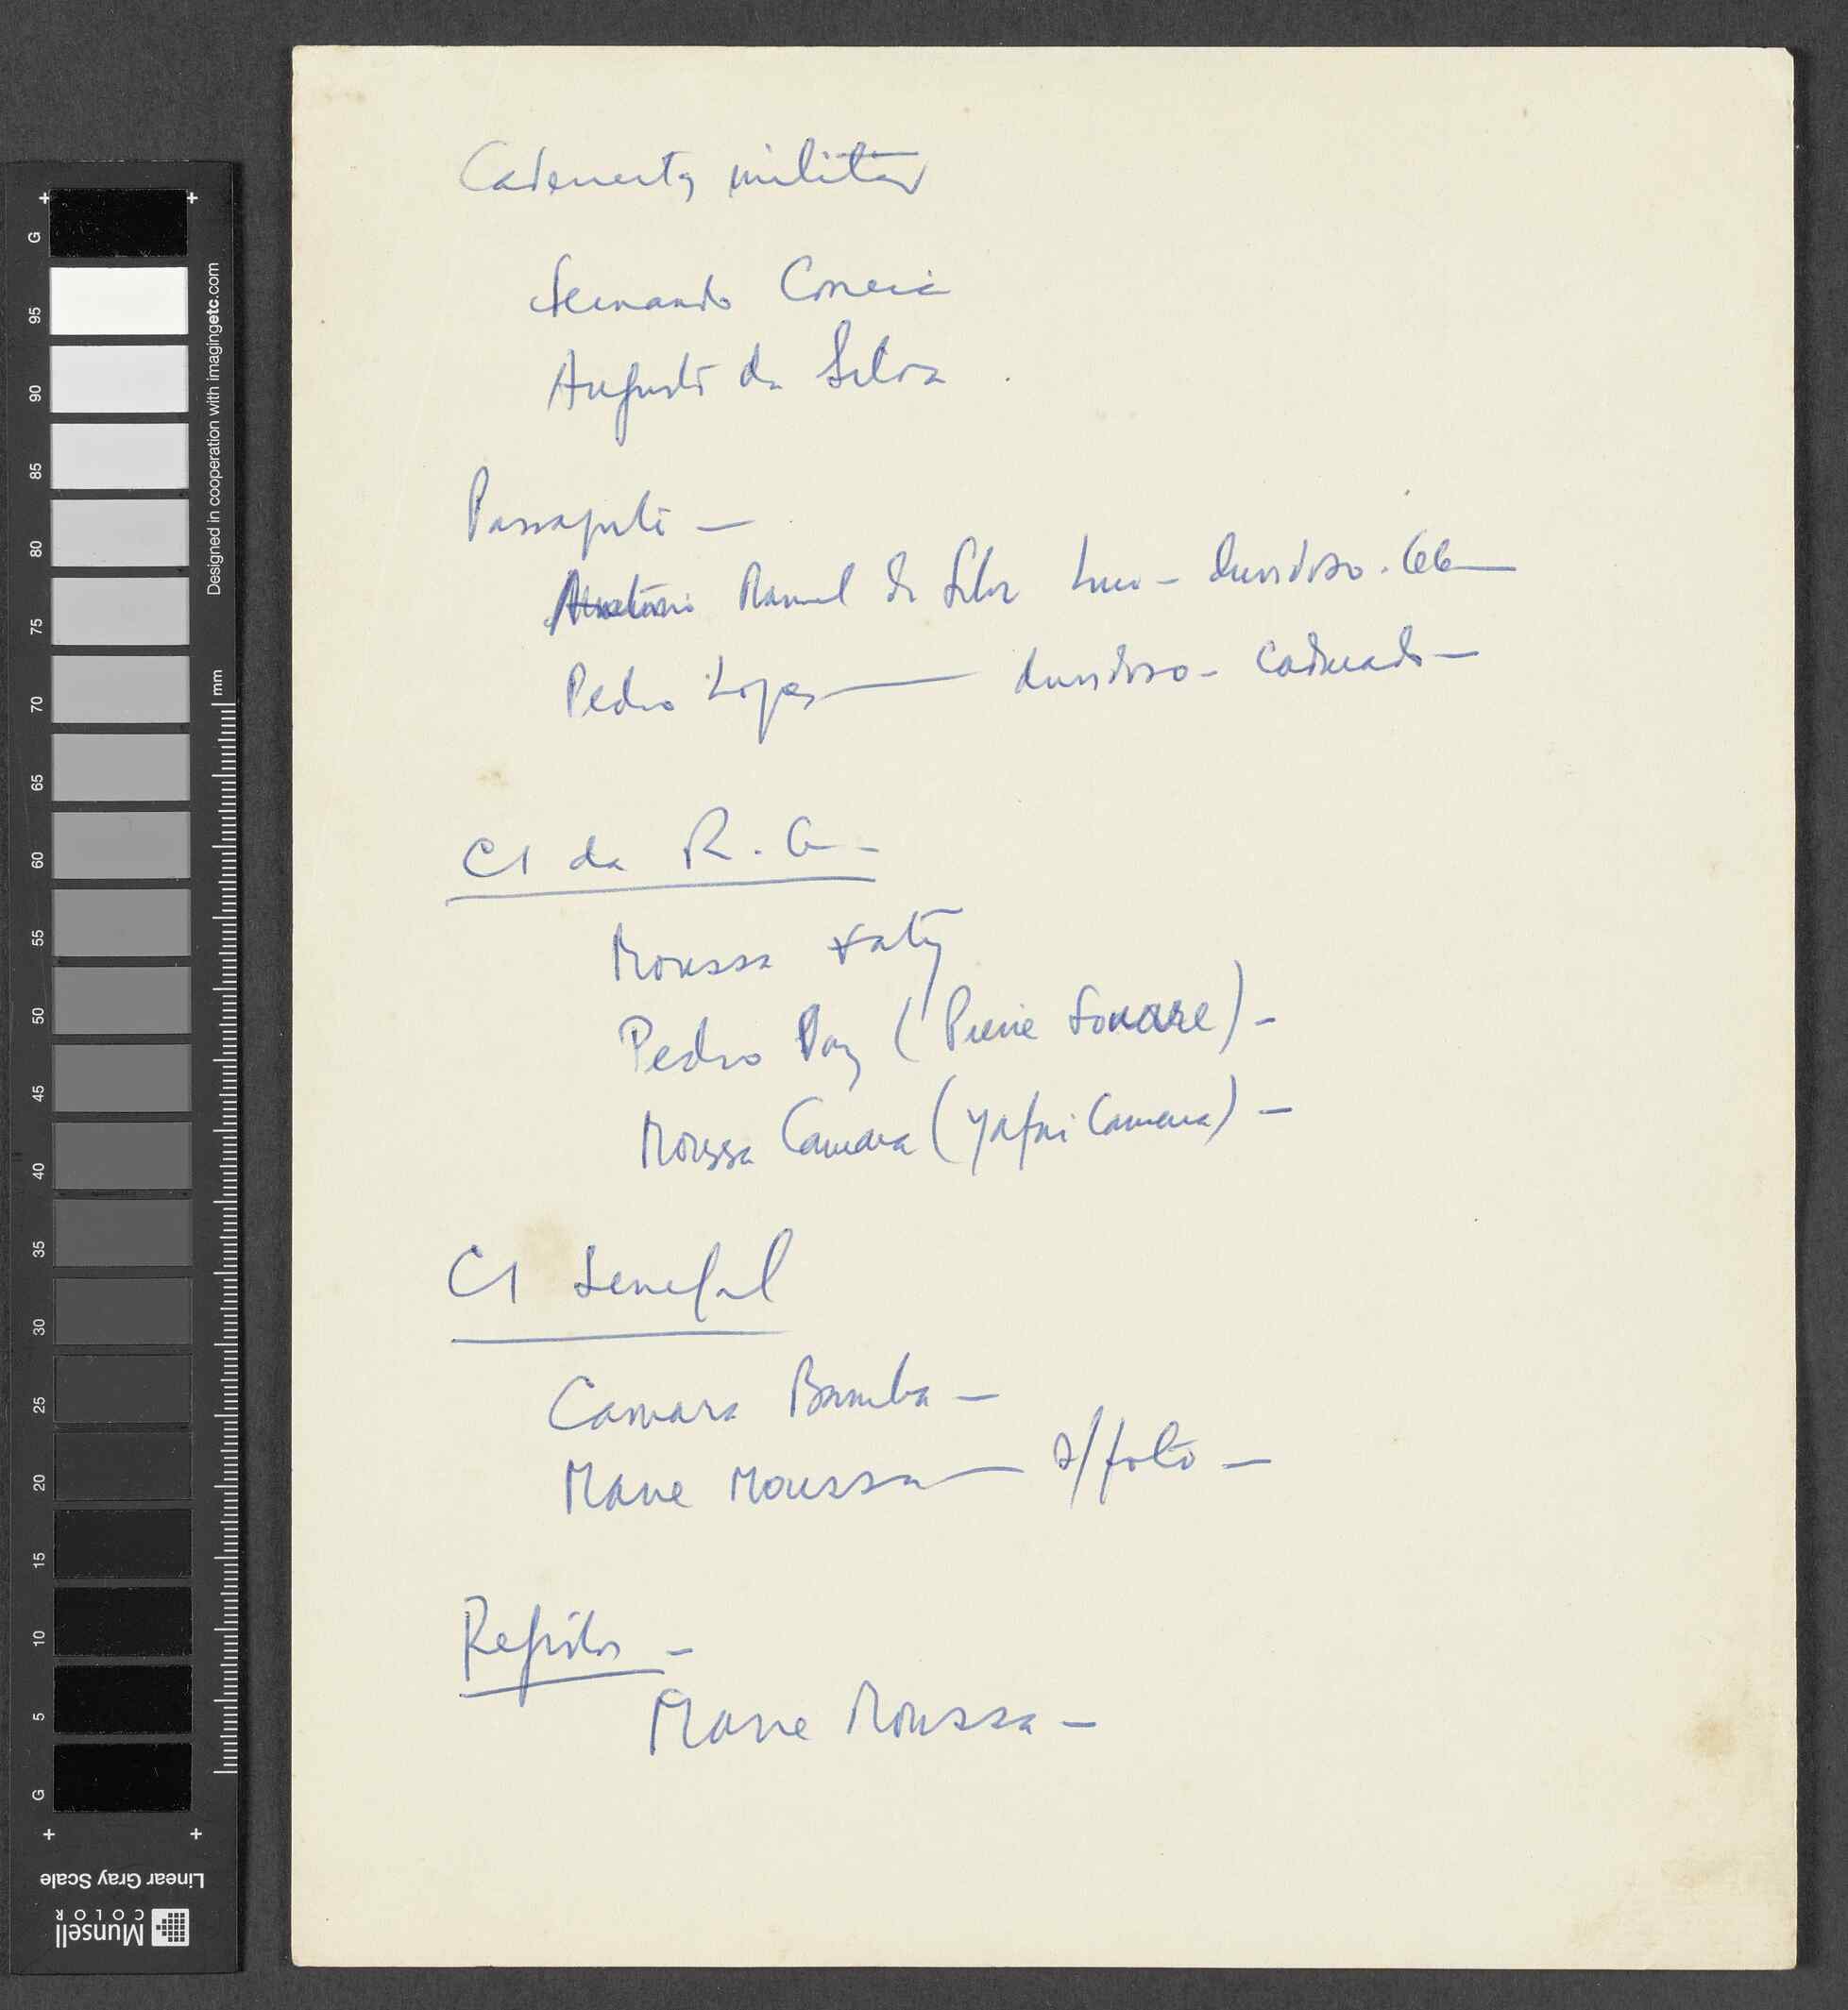 Caderneta militar
Fernando Correia
Augusto da Silva
Passaporte —
Manuel da Silva - duvidoso. 66 —
Pedro Lopes — duvidoso - caducado —
CI da R. G. -
Moussa Faty
Pedro Vaz (Pierre Souaré) -
Moussa Camara (Yafai Camara) —
CI Senegal
Camara Bamba —
Mane Moussa — s/foto —
Registos —
Mane Moussa —
G
95
90
85
80
75
70
65
60
55
50
45
40
35
30
25
20
15
10
5
G
Designed in cooperation with imagingetc.com
mm
Linear Gray Scale
Munsell
COLOR